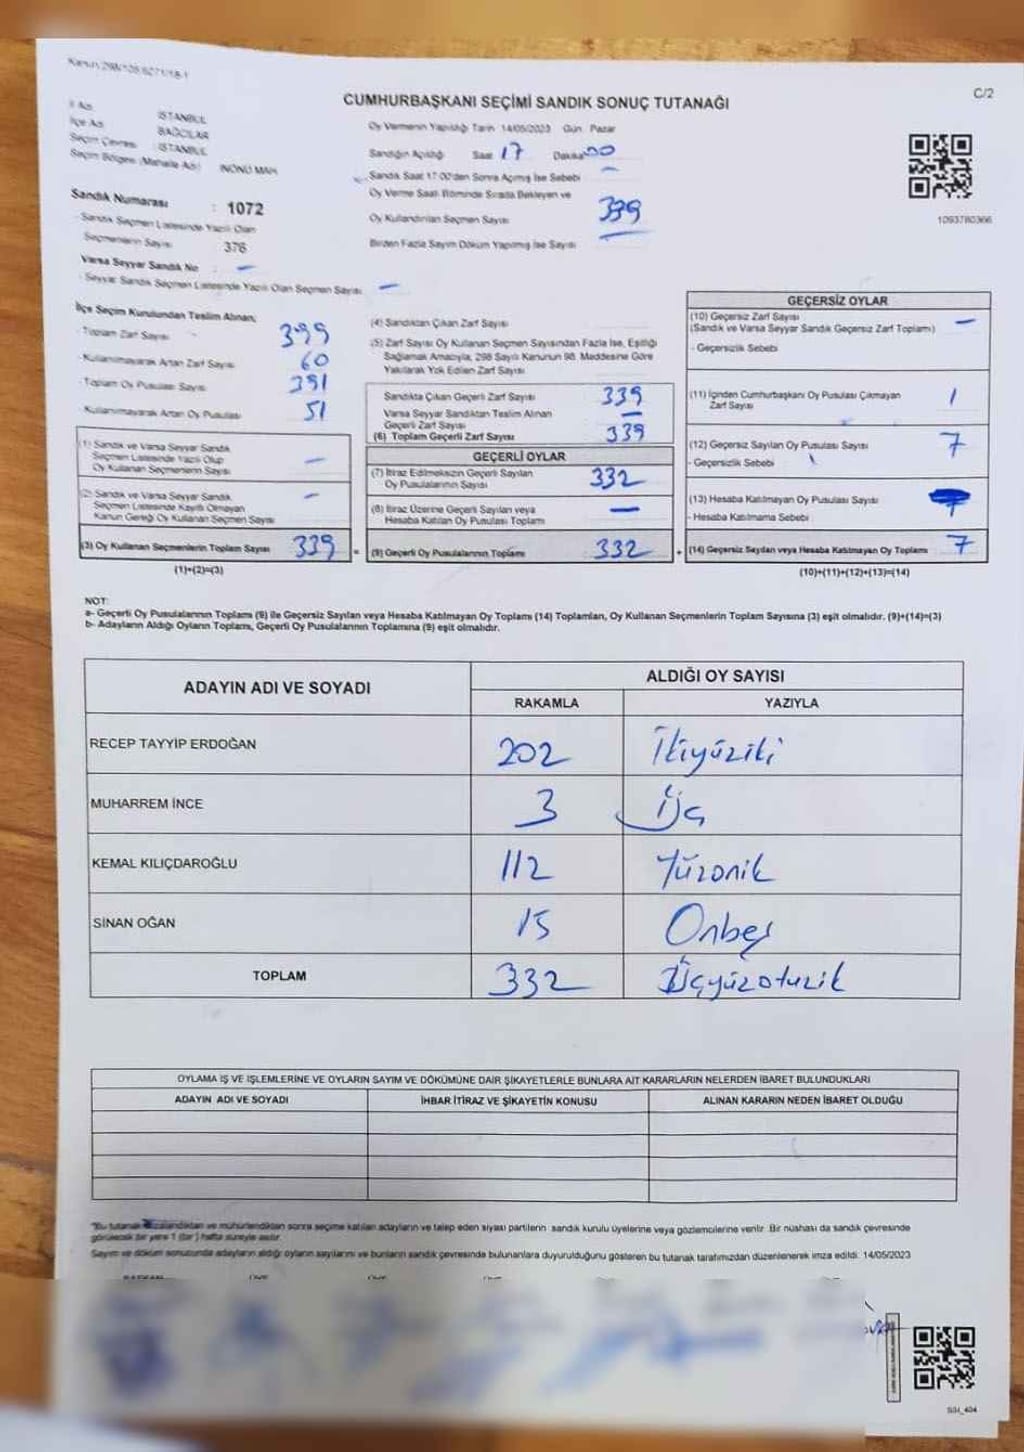 Kanun 298/105 6271/18-1
C/2
CUMHURBAŞKANI SEÇİMİ SANDIK SONUÇ TUTANAĞI
İl Adı İSTANBUL
İlçe Adı BAĞCILAR
Seçim Çevresi İSTANBUL
Seçim Bölgesi (Mahalle Adı) İNÖNÜ MAH
Sandık Numarası : 1072
- Sandık Seçmen Listesinde Yazılı Olan
Seçmenlerin Sayısı 376
Varsa Seyyar Sandık No : -
- Seyyar Sandık Seçmen Listesinde Yazılı Olan Seçmen Sayısı -
Oy Vermenin Yapıldığı Tarih 14/05/2023 Gün Pazar
Sandığın Açıldığı Saat 17 Dakika 00
Sandık Saat 17.00'den Sonra Açılmış İse Sebebi -
Oy Verme Saati Bitiminde Sırada Bekleyen ve
Oy Kullandırılan Seçmen Sayısı 339
Birden Fazla Sayım Döküm Yapılmış İse Sayısı
1093780366
İlçe Seçim Kurulundan Teslim Alınan;
- Toplam Zarf Sayısı 399
- Kullanılmayarak Artan Zarf Sayısı 60
- Toplam Oy Pusulası Sayısı 391
- Kullanılmayarak Artan Oy Pusulası 51
(1) Sandık ve Varsa Seyyar Sandık
Seçmen Listesinde Yazılı Olup
Oy Kullanan Seçmenlerin Sayısı -
(2) Sandık ve Varsa Seyyar Sandık
Seçmen Listesinde Kayıtlı Olmayan
Kanun Gereği Oy Kullanan Seçmen Sayısı -
(3) Oy Kullanan Seçmenlerin Toplam Sayısı 339 =
(1)+(2)=(3)
(4) Sandıktan Çıkan Zarf Sayısı
(5) Zarf Sayısı Oy Kullanan Seçmen Sayısından Fazla İse, Eşitliği
Sağlamak Amacıyla, 298 Sayılı Kanunun 98. Maddesine Göre
Yakılarak Yok Edilen Zarf Sayısı
Sandıkta Çıkan Geçerli Zarf Sayısı 339
Varsa Seyyar Sandıktan Teslim Alınan
Geçerli Zarf Sayısı -
(6) Toplam Geçerli Zarf Sayısı 339
GEÇERLİ OYLAR
(7) İtiraz Edilmeksizin Geçerli Sayılan
Oy Pusulalarının Sayısı 332
(8) İtiraz Üzerine Geçerli Sayılan veya
Hesaba Katılan Oy Pusulası Toplamı -
(9) Geçerli Oy Pusulalarının Toplamı 332 +
GEÇERSİZ OYLAR
(10) Geçersiz Zarf Sayısı
(Sandık ve Varsa Seyyar Sandık Geçersiz Zarf Toplamı) -
- Geçersizlik Sebebi
(11) İçinden Cumhurbaşkanı Oy Pusulası Çıkmayan
Zarf Sayısı 1
(12) Geçersiz Sayılan Oy Pusulası Sayısı 7
- Geçersizlik Sebebi
(13) Hesaba Katılmayan Oy Pusulası Sayısı
- Hesaba Katılmama Sebebi
(14) Geçersiz Sayılan veya Hesaba Katılmayan Oy Toplamı 7
(10)+(11)+(12)+(13)=(14)
NOT:
a- Geçerli Oy Pusulalarının Toplamı (9) ile Geçersiz Sayılan veya Hesaba Katılmayan Oy Toplamı (14) Toplamları, Oy Kullanan Seçmenlerin Toplam Sayısına (3) eşit olmalıdır. (9)+(14)=(3)
b- Adayların Aldığı Oyların Toplamı, Geçerli Oy Pusulalarının Toplamına (9) eşit olmalıdır.
ADAYIN ADI VE SOYADI ALDIĞI OY SAYISI
RAKAMLA YAZIYLA
RECEP TAYYİP ERDOĞAN 202 İkiyüziki
MUHARREM İNCE 3 Üç
KEMAL KILIÇDAROĞLU 112 Yüzonik
SİNAN OĞAN 15 Onbeş
TOPLAM 332 Üçyüzotuzik
OYLAMA İŞ VE İŞLEMLERİNE VE OYLARIN SAYIM VE DÖKÜMÜNE DAİR ŞİKAYETLERLE BUNLARA AİT KARARLARIN NELERDEN İBARET BULUNDUKLARI
ADAYIN ADI VE SOYADI İHBAR İTİRAZ VE ŞİKAYETİN KONUSU ALINAN KARARIN NEDEN İBARET OLDUĞU
"Bu tutanak imzalandıktan ve mühürlendikten sonra seçime katılan adayların ve talep eden siyasi partilerin sandık kurulu üyelerine veya gözlemcilerine verilir. Bir nüshası da sandık çevresinde
görülecek bir yere 1 (bir) hafta süreyle asılır.
Sayım ve döküm sonucunda adayların aldığı oyların sayılarını ve bunların sandık çevresinde bulunanlara duyurulduğunu gösteren bu tutanak tarafımızdan düzenlenerek imza edildi. 14/05/2023